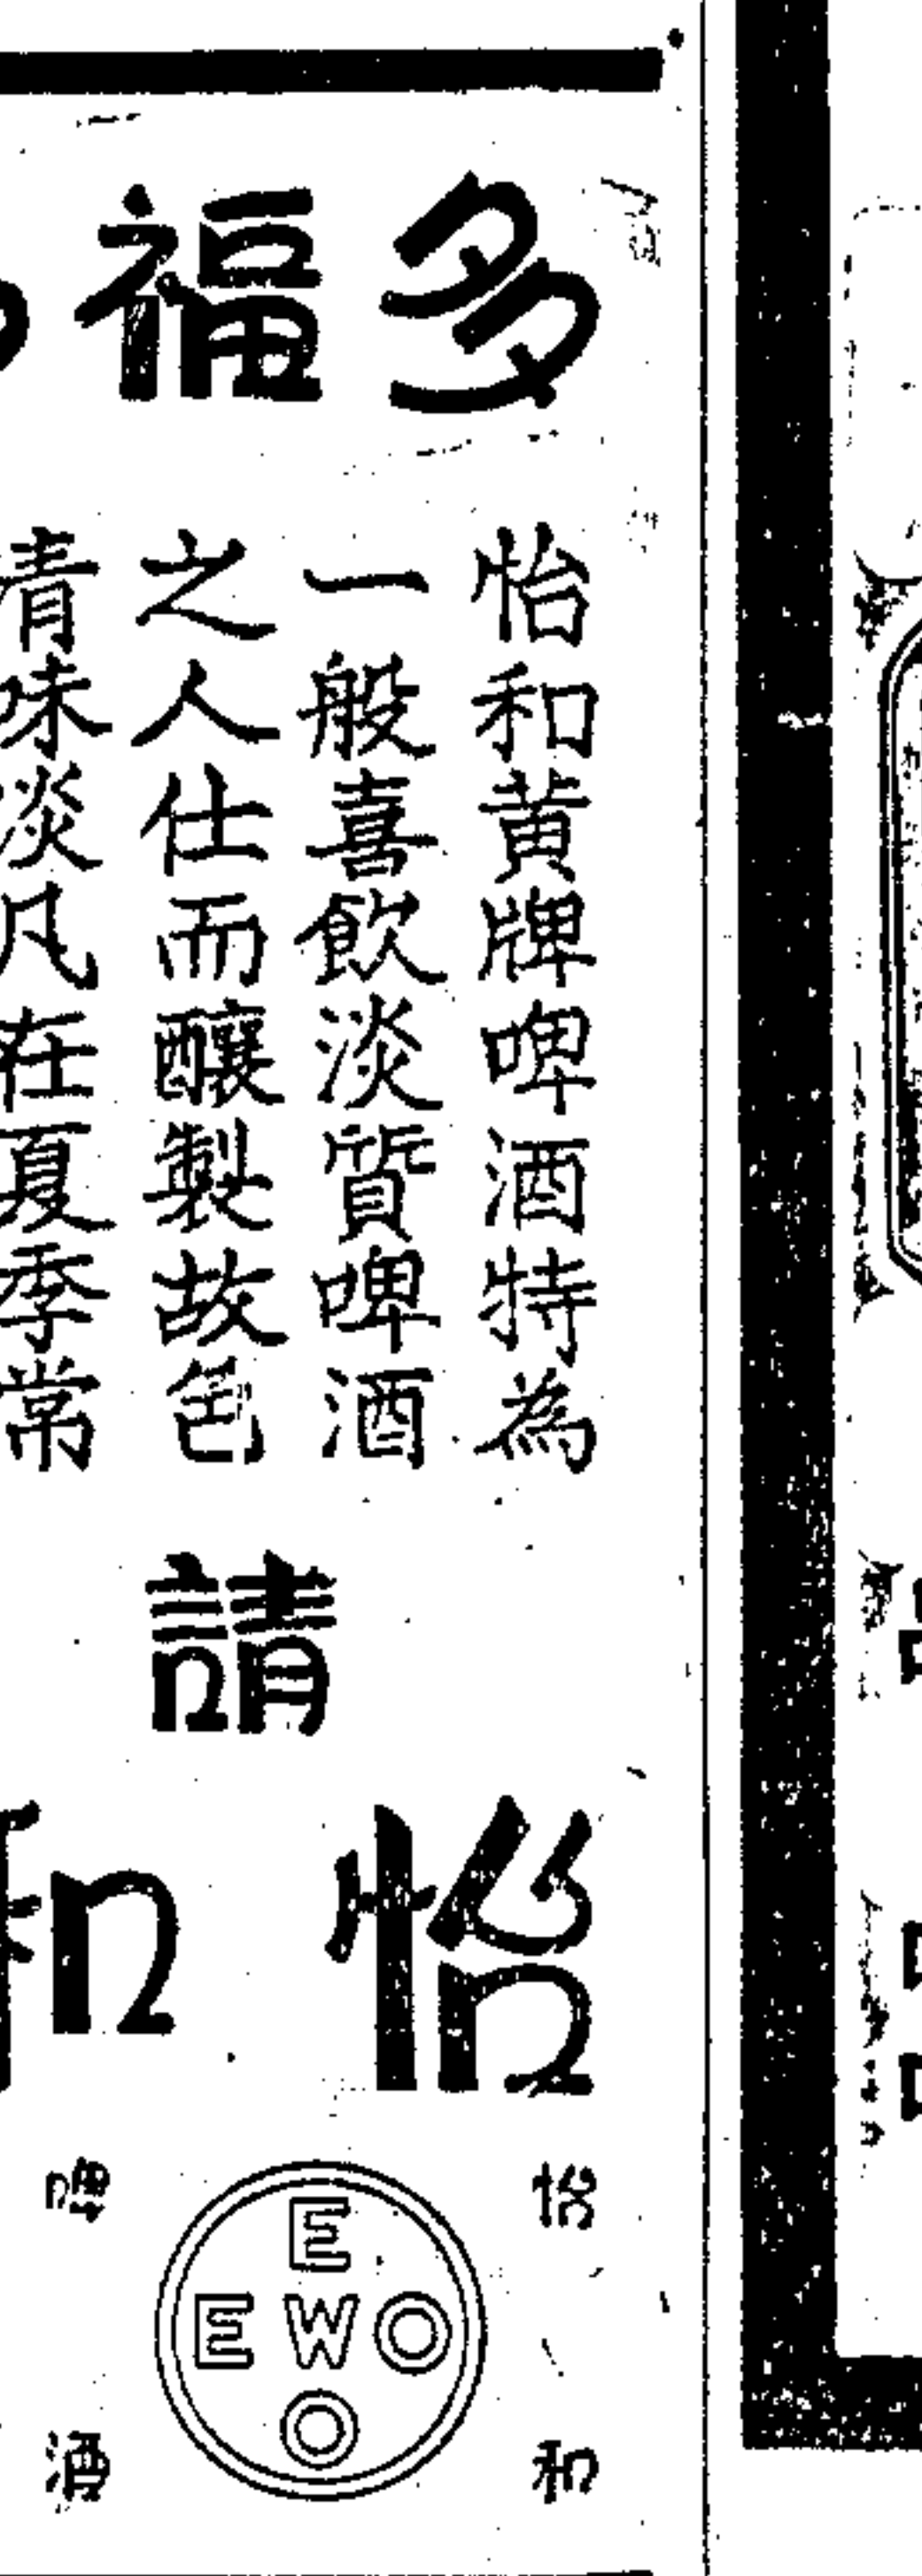 多福
怡和黄牌啤酒特為
一般喜飲淡質啤酒
之人仕而釀製故色
清味淡凡在夏季常
請
怡和
怡和
啤酒
E
EWO
O